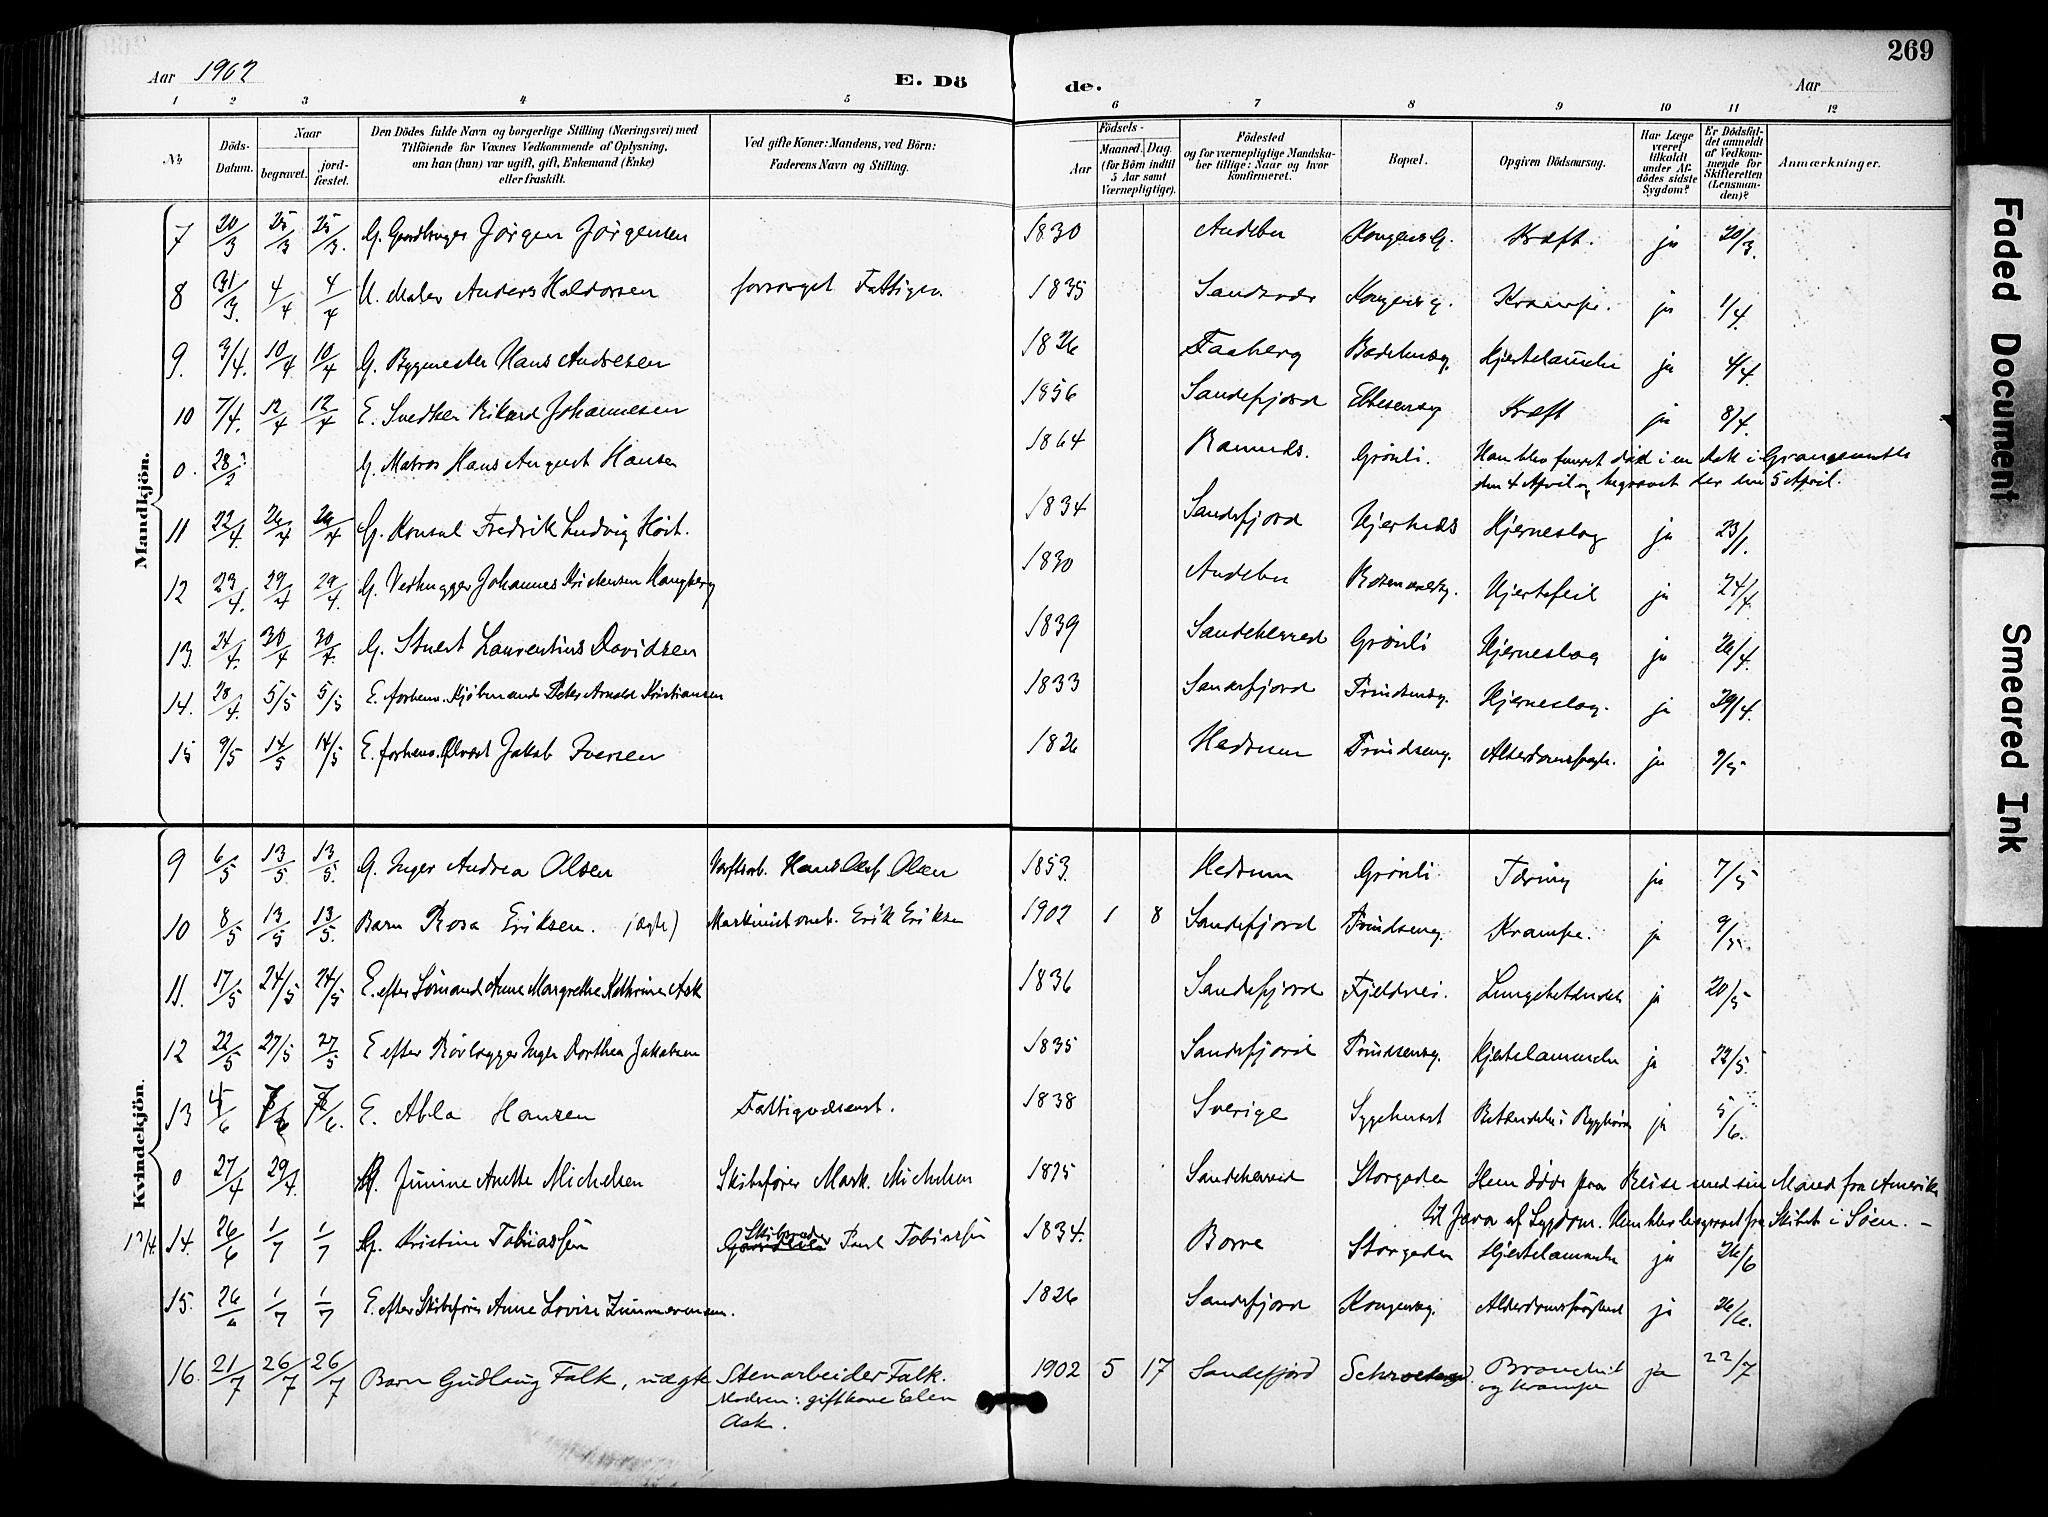 269
Aar 1902
E. Dö
de.
Aar
1 2 3 4 5 6 7 8 9 10 11 12
No
Döds-Datum.
Naar
begravet.
jord-fæstet.
Den Dödes fulde Navn og borgerlige Stilling (Næringsvei) med
Tilföiende for Voxnes Vedkommende af Oplysning,
om han (hun) var ugift, gift, Enkemand (Enke)
eller fraskilt.
Ved gifte Koner: Mandens, ved Börn:
Faderens Navn og Stilling.
Födsels-
Aar
Maaned. Dag.
(for Börn indtil
5 Aar samt
Værnepligtige).
Födested
og for værnepligtige Mandska-
ber tillige: Naar og hvor
konfirmeret.
Bopæl.
Opgiven Dödsaarsag.
Har Læge
været
tilkaldt
under Af-
dödes sidste
Sygdom?
Er Dödsfal-
det anmeldt
af Vedkom-
mende for
Skifteretten
(Lensman-
den)?
Anmærkninger.
Mandkjön.
7 20/3 25/3 25/3. G. Gaardbruger Jörgen Jörgensen 1830 Andebu Kongensg. Kræft. ja 20/3.
8 31/3. 4/4 4/4 U. Maler Anders Haldorsen forsörget Fattigv. 1835 Kongensg. Krampe. ja 1/4.
9. 3/4. 10/4 10/4 G. Bygmester Hans Andresen 1826 Faaberg Hjertelammelse ja 4/4.
10 7/4. 12/4 12/4 E. Snedker Rikard Johannesen 1856 Sandefjord Kræft ja 8/4.
0. 28/2 ? G. Matros Hans August Hansen 1864 Ramnæs. Grönli. Han blev funnet död i en Dok i
den 4 April og begravet der den 5 April.
11 22/4. 26/4 26/4 G. Konsul Fredrik Ludvig Höst. 1834 Sandefjord Hjertnæs Hjerneslag ja
12 23/4. 29/4 29/4. G. Vedhugger Johannes Kristensen Haugberg 1830 Andebu Hjertefeil ja 24/4.
13. 24/4. 30/4 30/4. G. Stuert Laurentius Davidsen 1839 Sandeherred Grönli Hjerneslag ja 26/4.
14. 28/4. 5/5 5/5 E. forhenv. Kjöbmand Peter Arnold Kristiansen 1833 Sandefjord Prindsensg. Hjerneslag. ja 29/4.
15 9/5 14/5 14/5 E. forhenv. Jakob Iversen 1826 Hedrum Prindseng. ja 9/5
Kvindekjön.
9 6/5 13/5. 13/5. G. Inger Andrea Olsen Værftsarb. Hans Olaf Olsen 1853. Hedrum Grönli Tæring ja 7/5
10 8/5 13/5 13/5. Barn Rosa Eriksen. (ægte) Maskinist Erik Eriksen 1902 1 8 Sandefjord Prindseng. Krampe. ja 9/5.
11. 17/5 24/5 24/5 E. efter Sömand Anne Margrethe Kathrine Ask 1836 Sandefjord Fjeldvei. Lungebetændelse ja 20/5
12 22/5 27/5 27/5 E efter Inger Dorthea Jakobsen 1835 Sandefjord Prindsensg. Hjertelammelse ja 22/5.
13 4/6 7/6 7/6. E. Abla Hansen Fattigvæsenet. 1838 Sverige Sygehuset Betændelse i Ryghvirv ja 5/6.
0 27/4 29/4. G. Junine Anette Michelsen Skibsförer Mark. Michelsen 1875 Sandeherred Storgaden Hun döde paa Reise med sin Mand fra Amerika
til Java af Sygdom. Hun blev begravet fra Skibet i Söen. –
14. 26/6 1/7 1/7 G. Kristine Tobiassen Skibsreder Paul Tobiassen 1834. Borre Storgaden Hjertelammelse ja 26/6
15. 26/6 1/7 1/7 E. efter Skibsförer Anne Lovise Zimmermann. 1826 Sandefjord Kongensg. Alderdomssvaghed ja 26/6.
16. 21/7 26/7 26/7 Barn Gudlaug Falk, uægte Stenarbeider Falk. 1902 5 17 Sandefjord Bronchit ja 22/7
Modren: gift kone Ellen og Krampe
Ask.
Faded Document
Smeared Ink